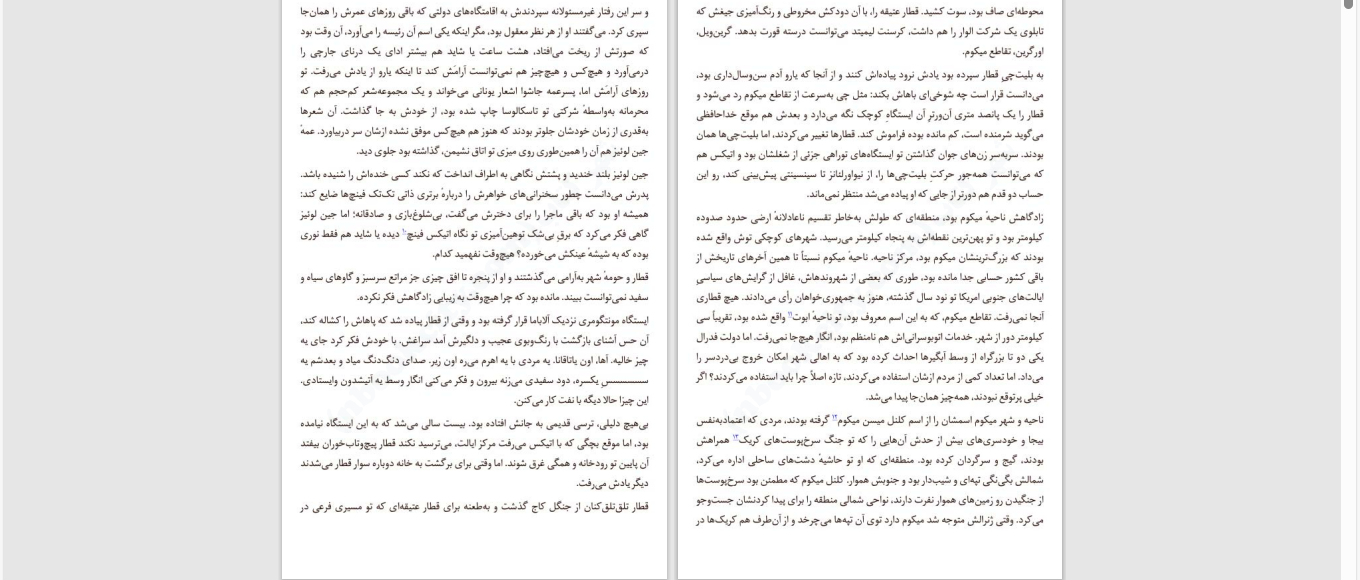 و سر این رفتار غیرمسئولانه سپردندش به اقامتگاه‌های دولتی که باقی روزهای عمرش را همان‌جا
سپری کرد. می‌گفتند او از هر نظر معقول بود، مگر اینکه یکی اسم آن رئیسه را می‌آورد، آن وقت بود
که صورتش از ریخت می‌افتاد، هشت ساعت یا شاید هم بیشتر ادای یک درنای جارچی را
درمی‌آورد و هیچ‌کس و هیچ‌چیز هم نمی‌توانست آرامَش کند تا اینکه یارو از یادش می‌رفت. تو
روزهای آرامَش اما، پسرعمه جاشوا اشعار یونانی می‌خواند و یک مجموعه‌شعر کم‌حجم هم که
محرمانه به‌واسطهٔ شرکتی تو تاسکالوسا چاپ شده بود، از خودش به جا گذاشت. آن شعرها
به‌قدری از زمان خودشان جلوتر بودند که هنوز هم هیچ‌کس موفق نشده ازشان سر دربیاورد. عمهٔ
جین لوئیز هم آن را همین‌طوری روی میزی تو اتاق نشیمن، گذاشته بود جلوی دید.
جین لوئیز بلند خندید و پشتش نگاهی به اطراف انداخت که نکند کسی خنده‌اش را شنیده باشد.
پدرش می‌دانست چطور سخنرانی‌های خواهرش را دربارهٔ برتری ذاتی تک‌تک فینچ‌ها ضایع کند:
همیشه او بود که باقی ماجرا را برای دخترش می‌گفت، بی‌شلوغ‌بازی و صادقانه؛ اما جین لوئیز
گاهی فکر می‌کرد که برقِ بی‌شک توهین‌آمیزی تو نگاه اتیکس فینچ۱۰ دیده یا شاید هم فقط نوری
بوده که به شیشهٔ عینکش می‌خورده؟ هیچ‌وقت نفهمید کدام.
قطار و حومهٔ شهر به‌آرامی می‌گذشتند و او از پنجره تا افق چیزی جز مراتع سرسبز و گاوهای سیاه و
سفید نمی‌توانست ببیند. مانده بود که چرا هیچ‌وقت به زیبایی زادگاهش فکر نکرده.
ایستگاه مونتگومری نزدیک آلاباما قرار گرفته بود و وقتی از قطار پیاده شد که پاهاش را کشاله کند،
آن حس آشنای بازگشت با رنگ‌وبوی عجیب و دلگیرش آمد سراغش. با خودش فکر کرد جای یه
چیز خالیه. آها، اون یاتاقانا. یه مردی با یه اهرم می‌ره اون زیر. صدای دنگ‌دنگ میاد و بعدشم یه
سسسسسسسِ یکسره، دود سفیدی می‌زنه بیرون و فکر می‌کنی انگار وسط یه آتیشدون وایستادی.
این چیزا حالا دیگه با نفت کار می‌کنن.
بی‌هیچ دلیلی، ترسی قدیمی به جانش افتاده بود. بیست سالی می‌شد که به این ایستگاه نیامده
بود، اما موقع بچگی که با اتیکس می‌رفت مرکز ایالت، می‌ترسید نکند قطار پیچ‌وتاب‌خوران بیفتد
آن پایین تو رودخانه و همگی غرق شوند. اما وقتی برای برگشت به خانه دوباره سوار قطار می‌شدند
دیگر یادش می‌رفت.
قطار تلق‌تلق‌کنان از جنگل کاج گذشت و به‌طعنه برای قطار عتیقه‌ای که تو مسیری فرعی در
محوطه‌ای صاف بود، سوت کشید. قطار عتیقه را، با آن دودکش مخروطی و رنگ‌آمیزی جیغش که
تابلوی یک شرکت الوار را هم داشت، کرسنت لیمیتد می‌توانست درسته قورت بدهد. گرین‌ویل،
اورگرین، تقاطع میکوم.
به بلیت‌چیِ قطار سپرده بود یادش نرود پیاده‌اش کنند و از آنجا که یارو آدم سن‌وسال‌داری بود،
می‌دانست قرار است چه شوخی‌ای باهاش بکند: مثل چی به‌سرعت از تقاطع میکوم رد می‌شود و
قطار را یک پانصد متری آن‌ورترِ آن ایستگاهِ کوچک نگه می‌دارد و بعدش هم موقع خداحافظی
می‌گوید شرمنده است، کم مانده بوده فراموش کند. قطارها تغییر می‌کردند، اما بلیت‌چی‌ها همان
بودند. سربه‌سر زن‌های جوان گذاشتن تو ایستگاه‌های توراهی جزئی از شغلشان بود و اتیکس هم
که می‌توانست همه‌جور حرکتِ بلیت‌چی‌ها را، از نیواورلئانز تا سینسینتی پیش‌بینی کند، رو این
حساب دو قدم هم دورتر از جایی که او پیاده می‌شد منتظر نمی‌ماند.
زادگاهش ناحیهٔ میکوم بود، منطقه‌ای که طولش به‌خاطر تقسیم ناعادلانهٔ ارضی حدود صدوده
کیلومتر بود و تو پهن‌ترین نقطه‌اش به پنجاه کیلومتر می‌رسید. شهرهای کوچکی توش واقع شده
بودند که بزرگ‌ترینشان میکوم بود، مرکز ناحیه. ناحیهٔ میکوم نسبتاً تا همین آخرهای تاریخش از
باقی کشور حسابی جدا مانده بود، طوری که بعضی از شهروندهاش، غافل از گرایش‌های سیاسیِ
ایالت‌های جنوبی امریکا تو نود سال گذشته، هنوز به جمهوری‌خواهان رأی می‌دادند. هیچ قطاری
آنجا نمی‌رفت. تقاطع میکوم، که به این اسم معروف بود، تو ناحیهٔ ابوت۱۱ واقع شده بود، تقریباً سی
کیلومتر دور از شهر. خدمات اتوبوسرانی‌اش هم نامنظم بود، انگار هیچ‌جا نمی‌رفت. اما دولت فدرال
یکی دو تا بزرگراه از وسط آبگیرها احداث کرده بود که به اهالی شهر امکان خروج بی‌دردسر را
می‌داد. اما تعداد کمی از مردم ازشان استفاده می‌کردند، تازه اصلاً چرا باید استفاده می‌کردند؟ اگر
خیلی پرتوقع نبودند، همه‌چیز همان‌جا پیدا می‌شد.
ناحیه و شهر میکوم اسمشان را از اسم کلنل میسن میکوم۱۲ گرفته بودند، مردی که اعتمادبه‌نفس
بیجا و خودسری‌های بیش از حدش آن‌هایی را که تو جنگ سرخ‌پوست‌های کریک۱۳ همراهش
بودند، گیج و سرگردان کرده بود. منطقه‌ای که او تو حاشیهٔ دشت‌های ساحلی اداره می‌کرد،
شمالش بگی‌نگی تپه‌ای و شیب‌دار بود و جنوبش هموار. کلنل میکوم که مطمئن بود سرخ‌پوست‌ها
از جنگیدن رو زمین‌های هموار نفرت دارند، نواحی شمالی منطقه را برای پیدا کردنشان جست‌وجو
می‌کرد. وقتی ژنرالش متوجه شد میکوم دارد توی آن تپه‌ها می‌چرخد و از آن‌طرف هم کریک‌ها در